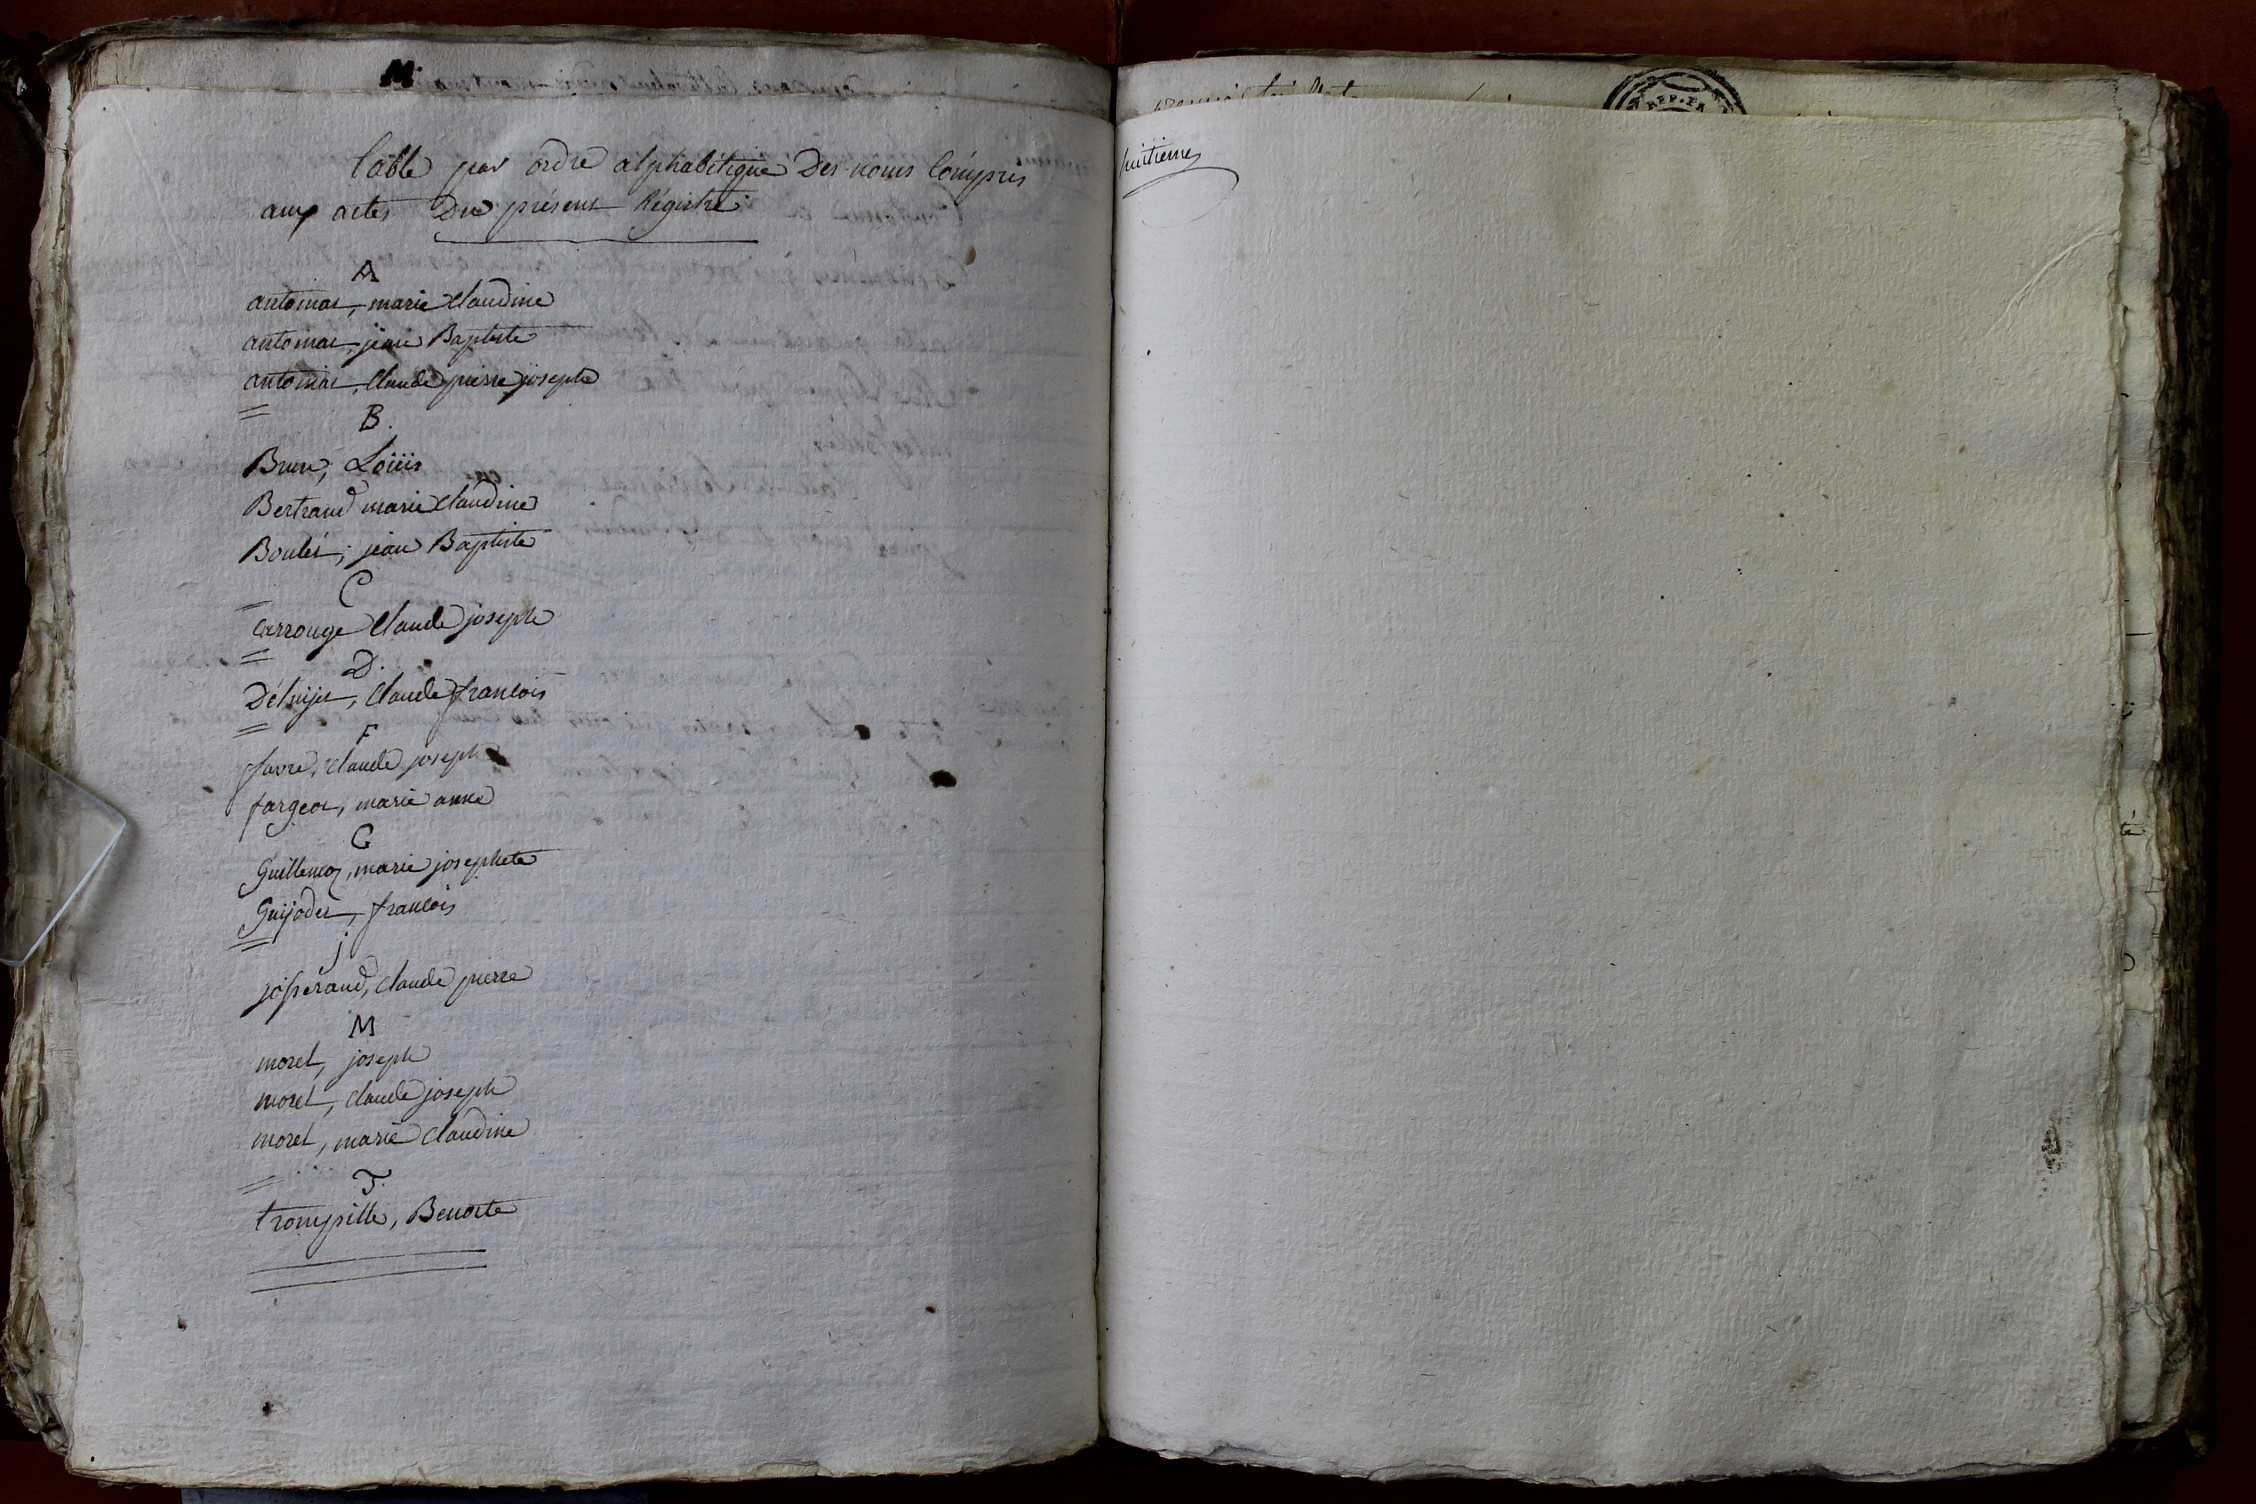 table par ordre alphabétique Des noms Compris
aux actes Du présent Régistre
A
antoinat, marie Claudine
antoinat, jean Baptiste
antoinat, Claude pierre joseph
B.
Brun, Loüis
Bertrand marie Claudine
jean Baptiste
C
carrouge Claude joseph
D.
Claude françois
F
favre, claude joseph
fargeot, marie anne
G
Guillemoz, marie josephete
françois
j
josserand, claude pierre
M
morel, joseph
morel, claude joseph
morel, marie claudine
T.
trompille, Benoite
huitieme
REP. FR